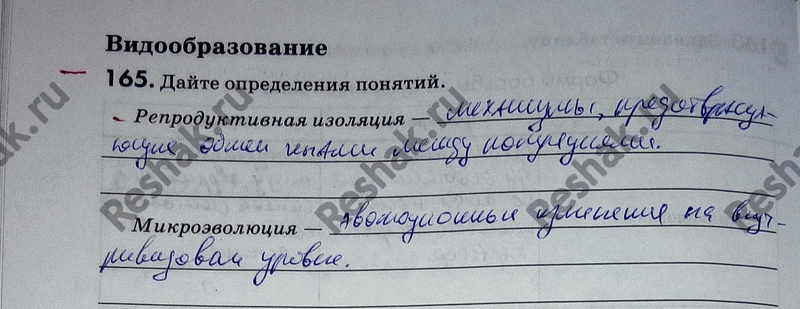 Видообразование
165. Дайте определения понятий.
Репродуктивная изоляция — механизмы, предотвращаю-
ющие обмен генами между популяциями.
Микроэволюция — эволюционные изменения на внут-
ривидовом уровне.
Reshak.ru
Reshak.ru
Reshak.ru
Reshak.ru